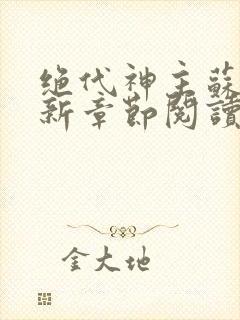 绝代神主蘇
新章節閱讀
金大地